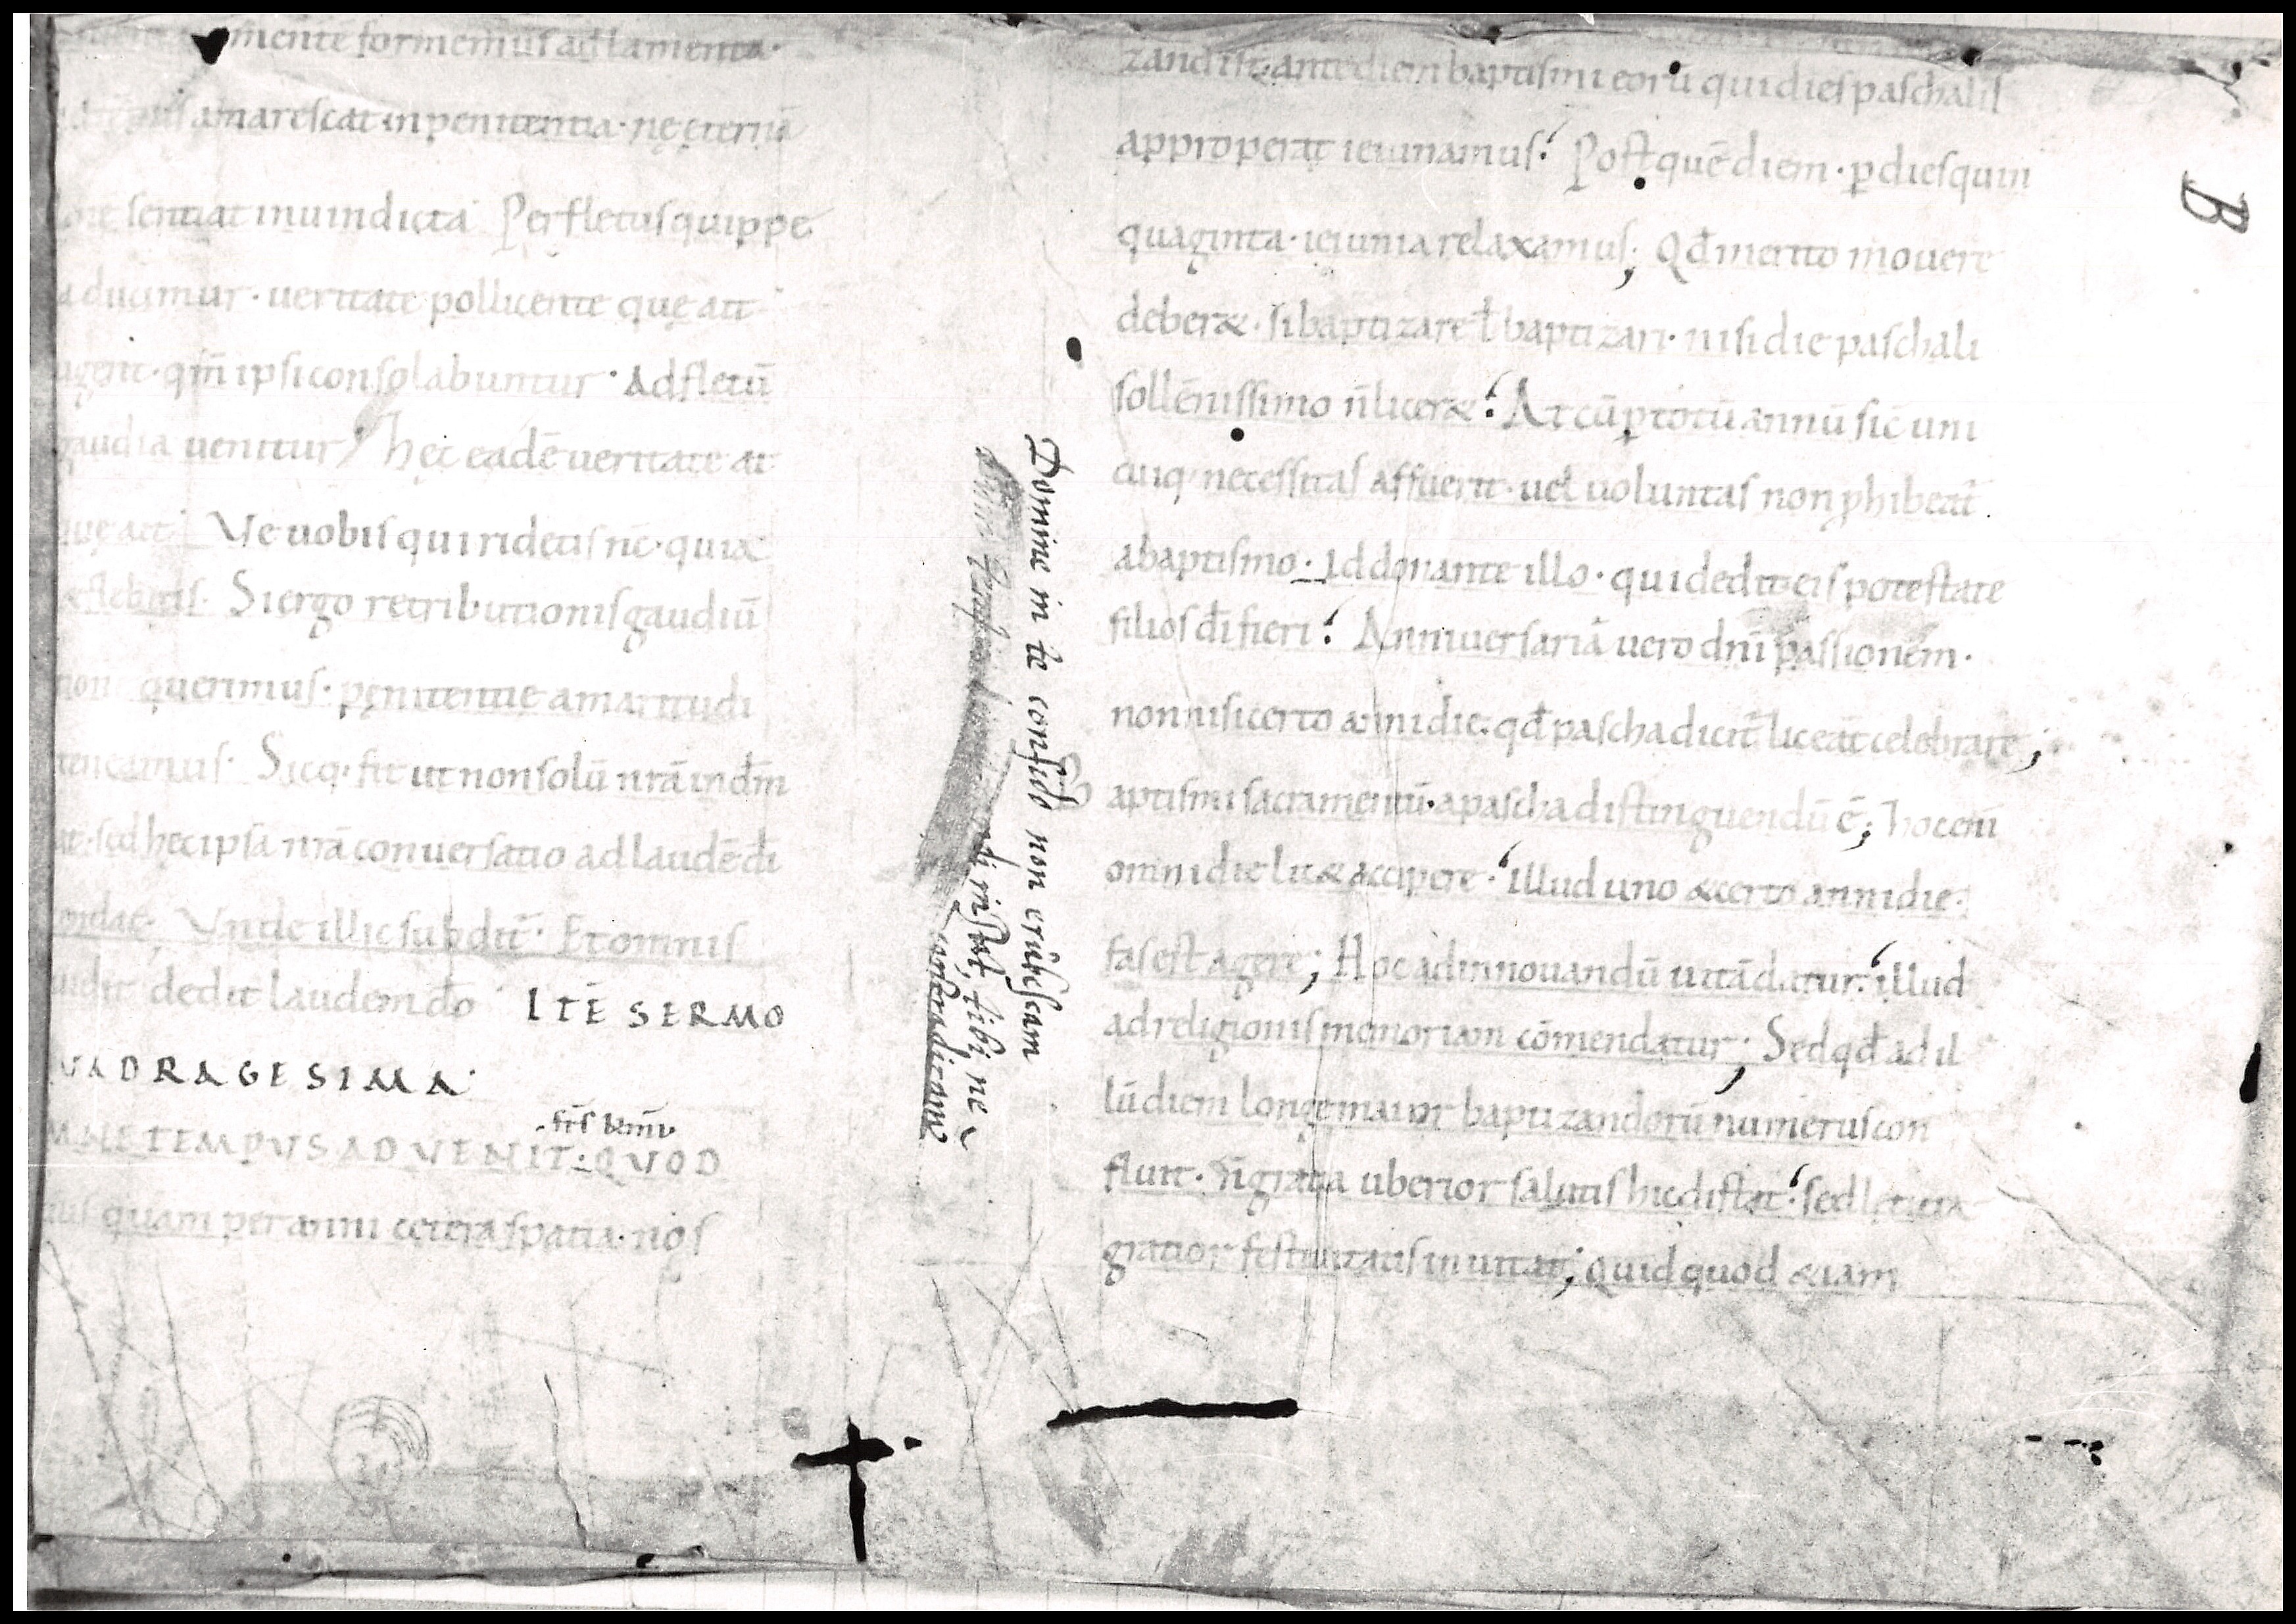 mente formemus ad lamenta·
amarescat in penitentia· ne eternā
sentiat in uindicta· Per fletus quippe
ducimur· ueritate pollicente que ait
lugent· qm̄ ipsi consolabuntur· Ad fletū
gaudia uenitur / hęc eadē ueritate
que ait· Ve uobis qui ridetis nc̄· quia
flebitis· Si ergo retributionis gaudiū
querimus· penitentie amaritudi
teneamus· Sicq· fit ut non solū nr̄a in dm̄
sed hęc ipsa nr̄a conuersatio ad laudē dī
Vnde illic subdit̄· Et omnis
uidit dedit laudem dō ITĒ SERMO
VADRAGESIMA·
frs kmi
MNE TEMPVS ADVENIT· QVOD
quam per anni cetera spatia· nos
Domine in te confido non erubescam
tibi, ne
contradicant
zandi st̄· ante diem baptismi eorū qui dies paschalis
approperat ieiunamus: Post quē diem· ꝑ dies quin
quaginta· ieiunia relaxamus; Qđ merito mouere
deber&· si baptizare ł baptizari· nisi die paschali
sollēnissimo n̄ licer&: At cū ꝑ totū annū sic̄ uni
cuiq· necessitas affuerit· uel uoluntas non ꝓhibeat̄
a baptismo· id donante illo· qui dedit eis potestate
filios dī fieri: Anniuersariā uero dn̄i passionem·
non nisi certo anni die· qđ pascha dicit̄ liceat celebrare;
B
aptismi sacramentū· a pascha distinguendū ē; hoc eni
omni die lic& accipere: illud uno & certo anni die·
fas est agere; Hoc ad innouandū uitā datur: illud
ad religionis memoriam cōmendatur; Sed qđ ad il
lū diem longe maior baptizandorū numerus con
fluit· n̄ gratia uberior salutis hic distat: sed letitia
gratior festiuitatis inuitat; Quid quod &iam
B